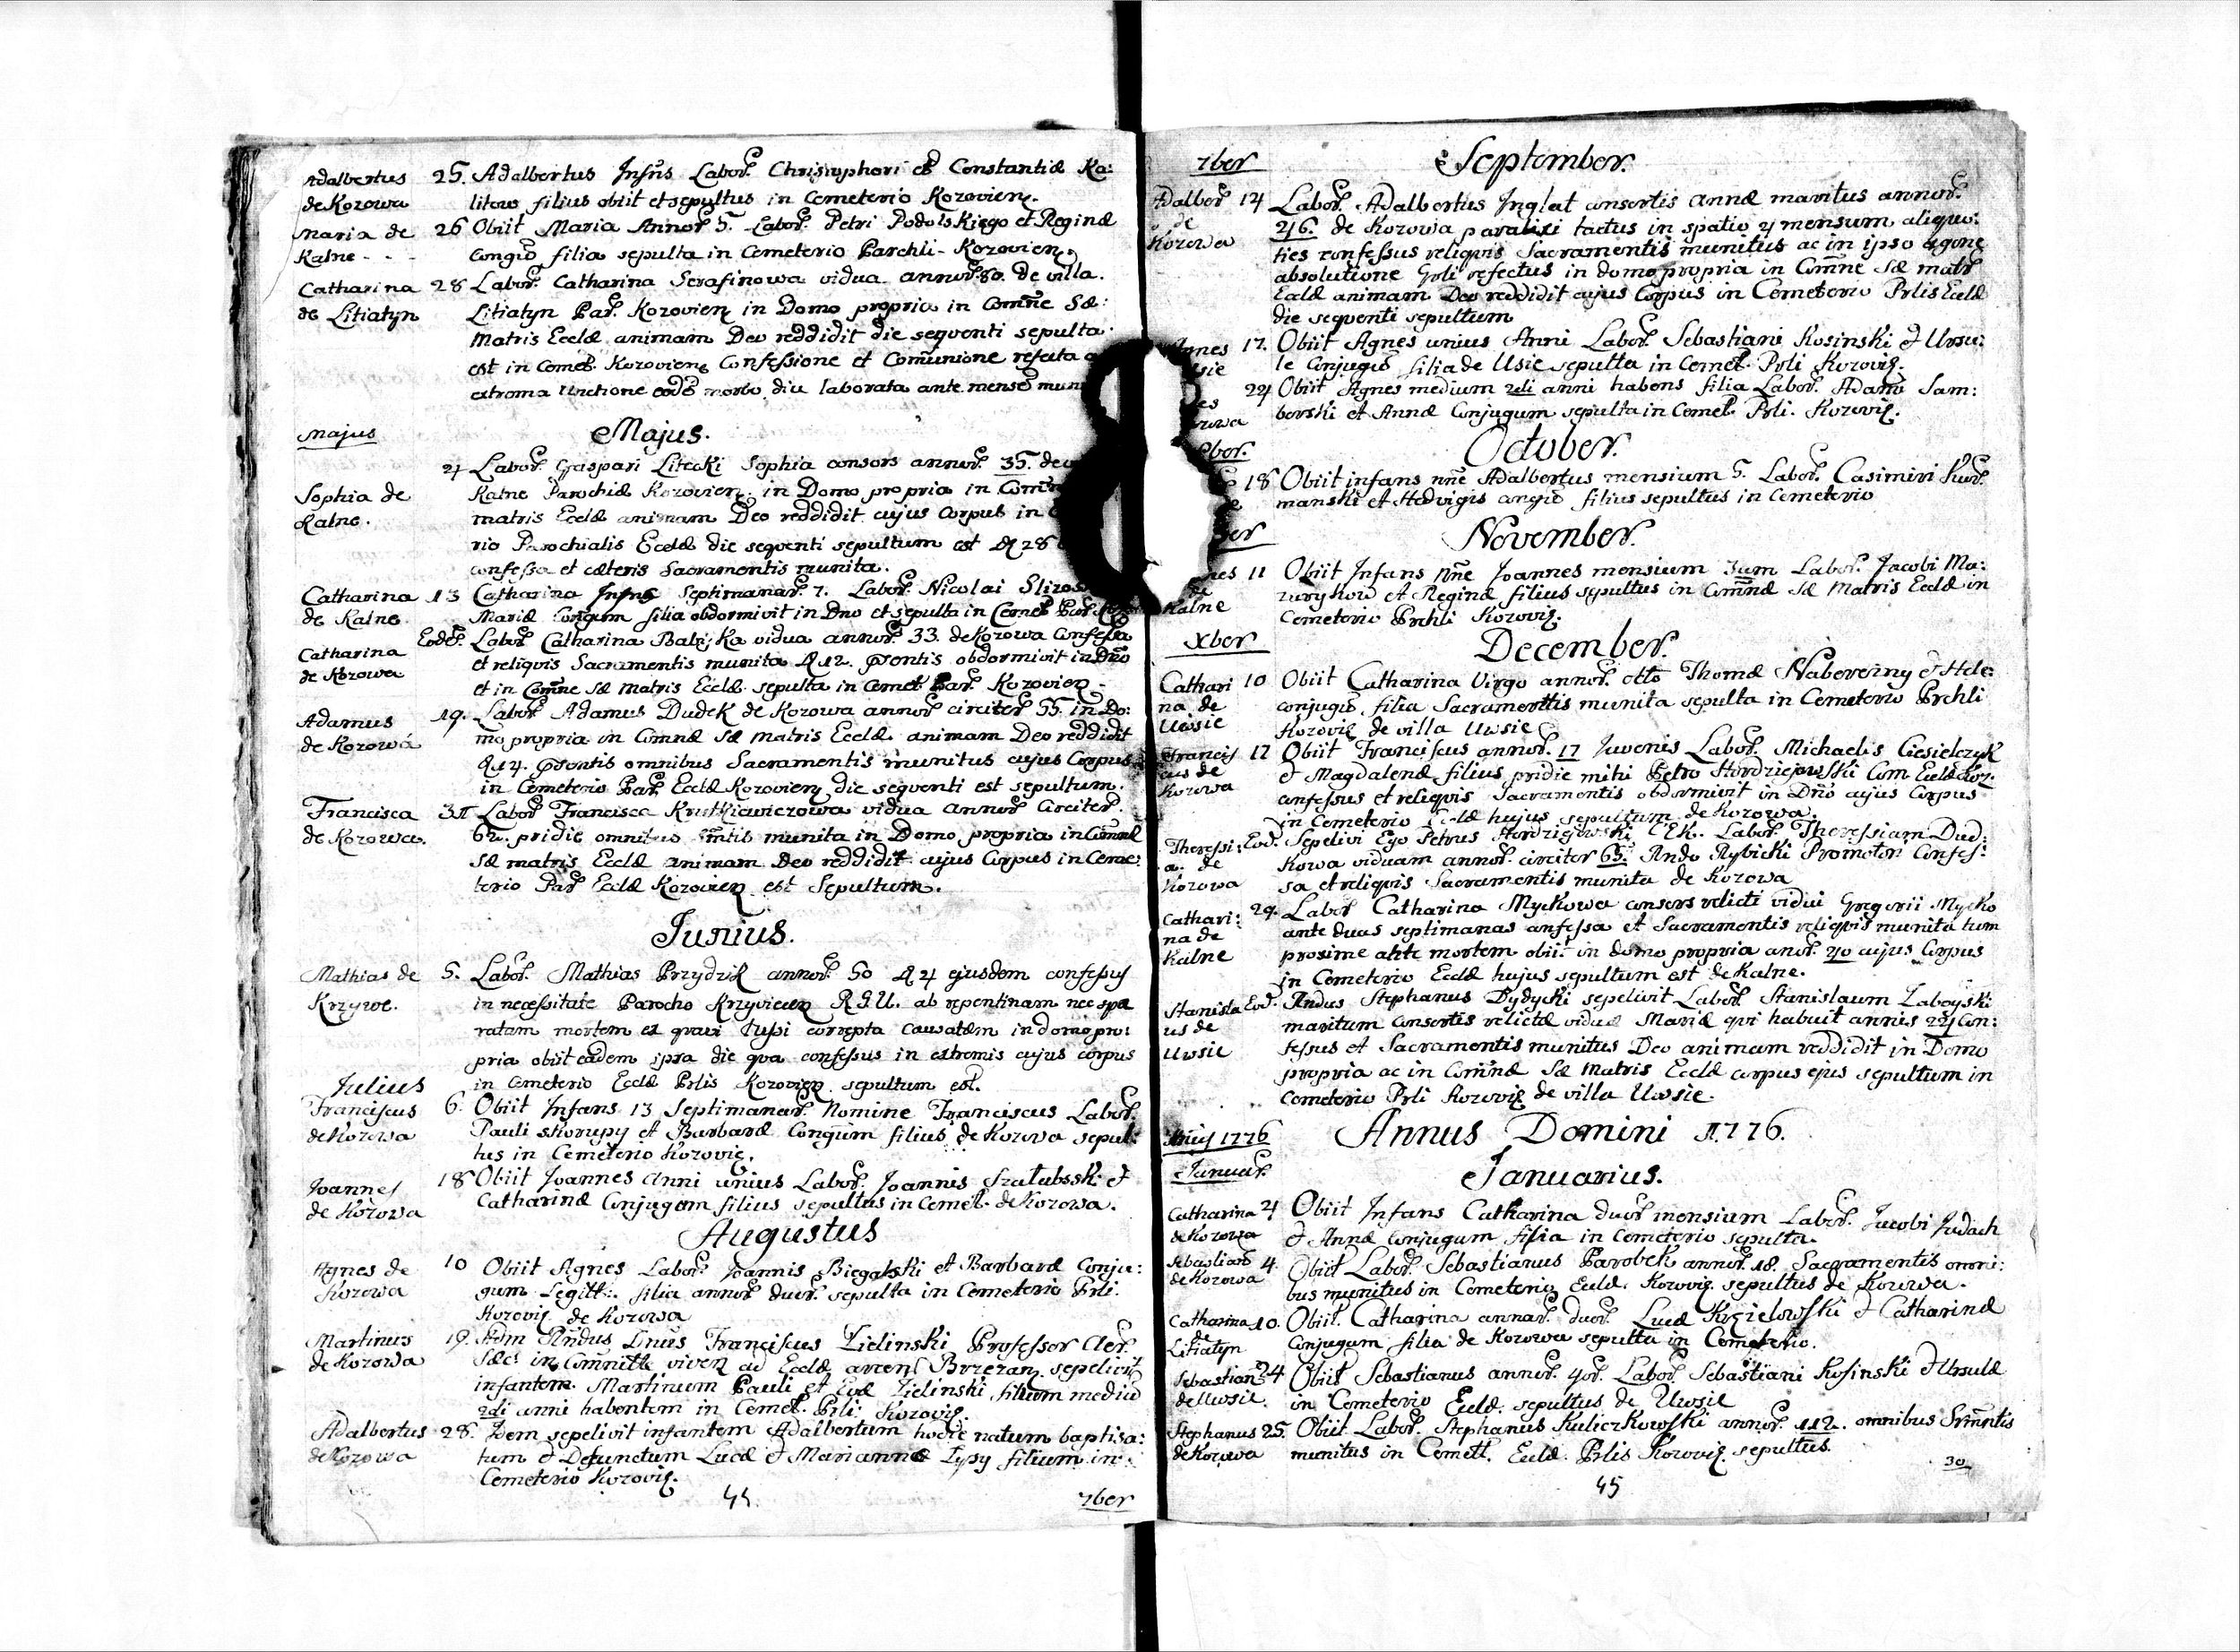 Adalbertus 25. Adalbertus Infns Labor. Christophori et Constantiæ Ka:
de Kozowa litow filius obiit et sepultus in Cemeterio Kozovien.
Maria de 26 Obiit Maria Annor 5. Labor. Petri Podolskiego et Reginæ
Kalne - - - congiū filia sepulta in Cemeterio Parchli - Kozovien
Catharina 28 Labor. Catharina Serafinowa vidua annor. 80. de villa.
de Litiatyn Litiatyn Par. Kozovien in Domo propria in Comñe Sæ:
Matris Eccłæ animam Deo reddidit die seqventi sepulta
est in Cemet. Kozovien Confessione et Comunione refecta
extrema Unctione eode morbo diu laborata ante mense
Majus
Majus.
4 Labor. Gaspari Litecki Sophia consors annor. 35. de
Sophia de Kalne Parochiæ Kozovien. in Domo propria in
Kalne. matris Eccłæ animam Deo reddidit cujus Corpus in
rio Parochialis Eccłæ die seqventi sepultum est 28
confessa et cæteris Sacramentis munita.
Catharina 13 Catharina Infns Septimanar. 7. Labor. Nicolai
de Kalne Mariæ Congum filia obdormivit in Dno et sepulta in Cemet Par.
Eode. Labor Catharina vidua annor. 33. de Kozowa Confessa
Catharina et reliqvis Sacramentis munita 12. obdormivit in Dño
de Kozowa et in Comñe Sæ Matris Eccłæ sepulta in Cemet. Par. Kozovien -
Adamus 19. Labor Adamus Dudek de Kozowa annor circiter 55. in Do:
de Kozowa mo propria in Comnæ Sæ matris Eccłæ. animam Deo reddidit
omnibus Sacramentis munitus cujus Corpus
in Cemeterio Par. Eccłæ Kozovien die seqventi est sepultum.
Francisca 31 Labor Francisca vidua annor Circiter.
de Kozowa. 62. pridie omnibus munita in Domo propria in Comñe
Sæ matris Eccłæ animam Deo reddidit cujus Corpus in Ceme:
terio Par Eccłæ Kozovien est Sepultum.
Junius.
Mathias de 5. Labor. Mathias Przydzik annor. 50 4 ejusdem confessus
Krzywe. in necessitate Parocho R.G.U. ab repentinam nec spe
ratam mortem ex gravi correpta causatam in domo pro:
pria obiit eadem ipsa die qva confessus in extremis cujus corpus
in Cemeterio Eccłæ Prlis Kozovien sepultum est.
Julius
Franciscus 6. Obiit Infans 13 Septimanar. Nomine Franciscus Labor.
de Kozowa Pauli Skorupy et Barbaræ Congium filius de Kozowa sepul:
tus in Cemeterio Kozovie.
Joannes 18 Obiit Joannes Anni unius Labor. Joannis et
de Kozowa Catharinæ Conjugum filius sepultus in Cemet. de Kozowa.
Augustus
Agnes de 10 Obiit Agnes Labor. Joannis Biegalski et Barbaræ Conju:
Kozowa gum Legitt: filia annor duor. sepulta in Cemeterio Prli.
Kozovi. de Kozowa
Martinus 19. Adm Rndus Dnus Franciscus Zielinski Professor Cler.
de Kozowa Sæc: in viven ad Eccłæ Brzezan sepelivit
infantem Martinum Pauli et Evæ Zielinski filium mediū
2di anni habentem in Cemet. Prli Kozovi.
Adalbertus 28. Idem sepelivit infantem Adalbertum hodie natum baptisa:
de Kozowa tum & Defunctum Lucæ & Mariannæ Lysy filium in
Cemeterio Kozovi.
7ber
7ber
September.
Adalber 14 Labor. Adalbertus Inglat consortis Annæ maritus annor.
de 46. de Kozowa paralisi tactus in spatio 4 mensum aliqvo:
Kozowa ties confessus reliqvis Sacramentis munitus ac in ipso agone
absolutione refectus in domo propria in Comñe Sæ matr
Eccłæ animam Deo reddidit cujus Corpus in Cemeterio Prlis Eccłæ
die seqventi sepultum
17. Obiit Agnes unius Anni Labor. Sebastiani Kosinski & Ursu:
le Conjugiū filia de Usie sepulta in Cemet. Prli Kozovi.
24 Obiit Agnes medium 2di anni habens filia Labor. Adami Sam:
borski et Annæ Conjugum sepulta in Cemet. Prli. Kozovi.
October.
18 Obiit infans nñe Adalbertus mensium 5. Labor. Casimiri Fur:
manski et Hedvigis congiū filius sepultus in Cemeterio
November.
11 Obiit Infans Nñe Joannes mensium 3um Labor. Jacobi Ma:
zurykow et Reginæ filius sepultus in Comñæ Sæ Matris Eccłæ in
Kalne Cemeterio Prchli Kozovi.
Xber
December.
Cathari 10 Obiit Catharina Virgo annor. otto Thomæ Nabereżny & Hele:
na de conjugiū filia Sacramenttis munita sepulta in Cemeterio Prchli
Uwsie Kozovi de villa Uwsie
Francis 12 Obiit Franciscus annor. 17 Juvenis Labor. Michaelis Ciesielczyk
cus de & Magdalenæ filius pridie mihi Petro Hordziejowski Com Eccłæ Koz.
Kozowa confessus et reliqvis Sacramentis obdormivit in Dño cujus Corpus
in Cemeterio Eccłæ hujus sepultum de Kozowa.
Theressi: Eod. Sepelivi Ego Petrus Hordziejowski CEK. Labor. Theressiam Dud:
a. de kowa viduam annor. circiter 65. Rndo Rybicki Promotori Confes:
Kozowa sa et reliqvis Sacramentis munita de Kozowa
Cathari: 29. Labor Catharina Myckowa consors relicti vidui Gregorii Mycko
na de ante duas septimanas confessa et Sacramentis reliqvis munita tum
Kalne proxime ante mortem obiit in domo propria anor. 40 cujus Corpus
in Cemeterio Eccłæ hujus sepultum est de Kalne.
Stanisla Eod. Rndus Stephanus Dydycki sepelivit Labor. Stanislaum Zaboyski
us de maritum consortis relictæ viduæ Mariæ qvi habuit annis 24 Con:
Uwsie fessus et Sacramentis munitus Deo animam reddidit in Domo
propria ac in Comñæ Sæ Matris Eccłæ corpus ejus sepultum in
Cemeterio Prli Kozovi de villa Uwsie.
1776
Annus Domini 1776.
Januar.
Januarius.
Catharina 4 Obiit Infans Catharina duor mensium Labor. Jacobi Judach
de Kozowa & Annæ conjugum filia in Cemeterio sepulta.
Sebastian 4. Obiit Labor. Sebastianus Parobek annor. 18. Sacramentis omni:
de Kozowa bus munitus in Cemeterio Eccłæ. Kozovi. sepultus de Kozowa.
Catharina 10. Obiit Catharina annor. duor. Lucæ & Catharinæ
de Conjugum filia de Kozowa sepulta in Cemeterio.
Litiatyn
Sebastian 24 Obiit Sebastianus annor. 4or. Labor. Sebastiani Kosinski & Ursulæ
de Uwsie. in Cemeterio Eccłæ. sepultus de Uwsie
Stephanus 25. Obiit Labor. Stephanus Kuliczkowski annor. 112. omnibus Srmntis
de Kozowa munitus in Cemett. Eccłæ. Prlis Kozovi. sepultus.
30
45